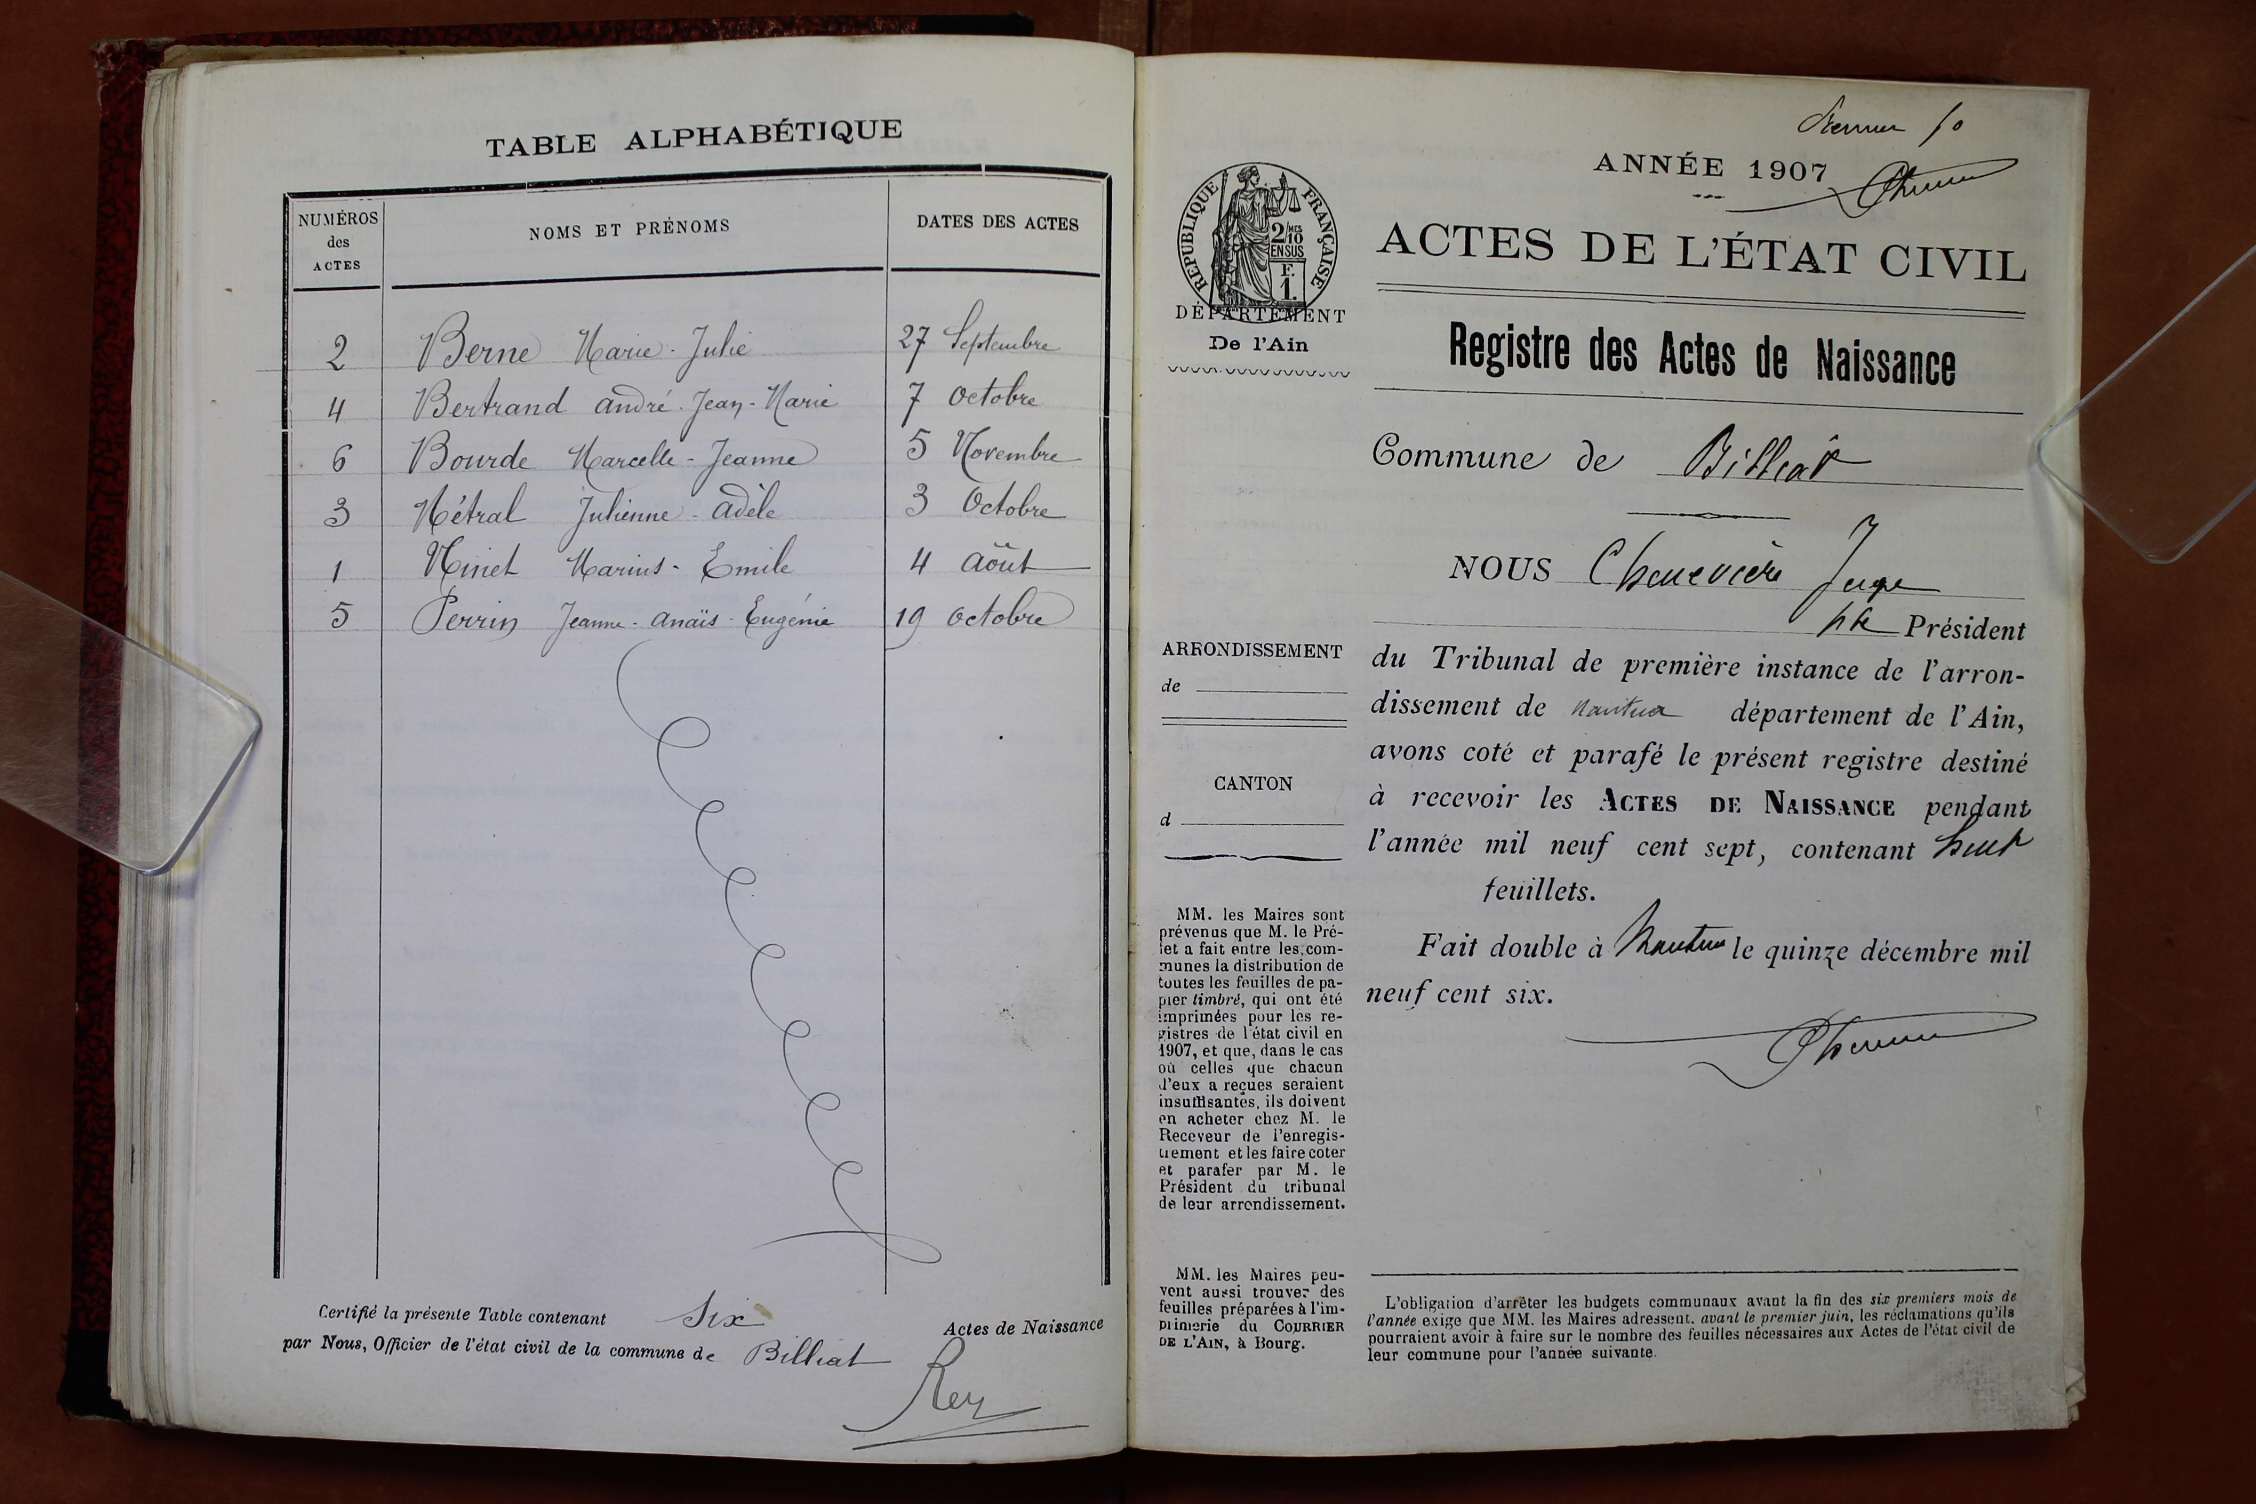 TABLE ALPHABÉTIQUE
NUMÉROS
des
ACTES
NOMS ET PRÉNOMS
DATES DES ACTES
2 Berne Marie-Julie 27 Septembre
4 Bertrand André-Jean-Marie 7 Octobre
6 Bourde Marcelle-Jeanne 5 Novembre
3 Métral Julienne-Adèle 3 Octobre
1 Ninet Marius-Emile 4 Août
5 Perrin Jeanne-Anaïs-Eugénie 19 Octobre
Certifié la présente Table contenant Six Actes de Naissance
par Nous, Officier de l'état civil de la commune de Billiat
Rey
ANNÉE 1907
RÉPUBLIQUE FRANÇAISE
2/10 MES
EN SUS
F.
1.
DÉPARTEMENT
De l'Ain
ACTES DE L'ÉTAT CIVIL
Registre des Actes de Naissance
Commune de Billiat
NOUS Chenevière Juge
Président
du Tribunal de première instance de l'arron-
dissement de Nantua département de l'Ain,
avons coté et parafé le présent registre destiné
à recevoir les ACTES DE NAISSANCE pendant
l'année mil neuf cent sept, contenant huit
feuillets.
Fait double à Nantua le quinze décembre mil
neuf cent six.
ARRONDISSEMENT
de
CANTON
d
MM. les Maires sont
prévenus que M. le Pré-
fet a fait entre les com-
munes la distribution de
toutes les feuilles de pa-
pier timbré, qui ont été
imprimées pour les re-
gistres de l'état civil en
1907, et que, dans le cas
où celles que chacun
d'eux a reçues seraient
insuffisantes, ils doivent
en acheter chez M. le
Receveur de l'enregis-
trement et les faire coter
et parafer par M. le
Président du tribunal
de leur arrondissement.
MM. les Maires peu-
vent aussi trouver des
feuilles préparées à l'im-
primerie du COURRIER
DE L'AIN, à Bourg.
L'obligation d'arrêter les budgets communaux avant la fin des six premiers mois de
l'année exige que MM. les Maires adressent, avant le premier juin, les réclamations qu'ils
pourraient avoir à faire sur le nombre des feuilles nécessaires aux Actes de l'état civil de
leur commune pour l'année suivante.